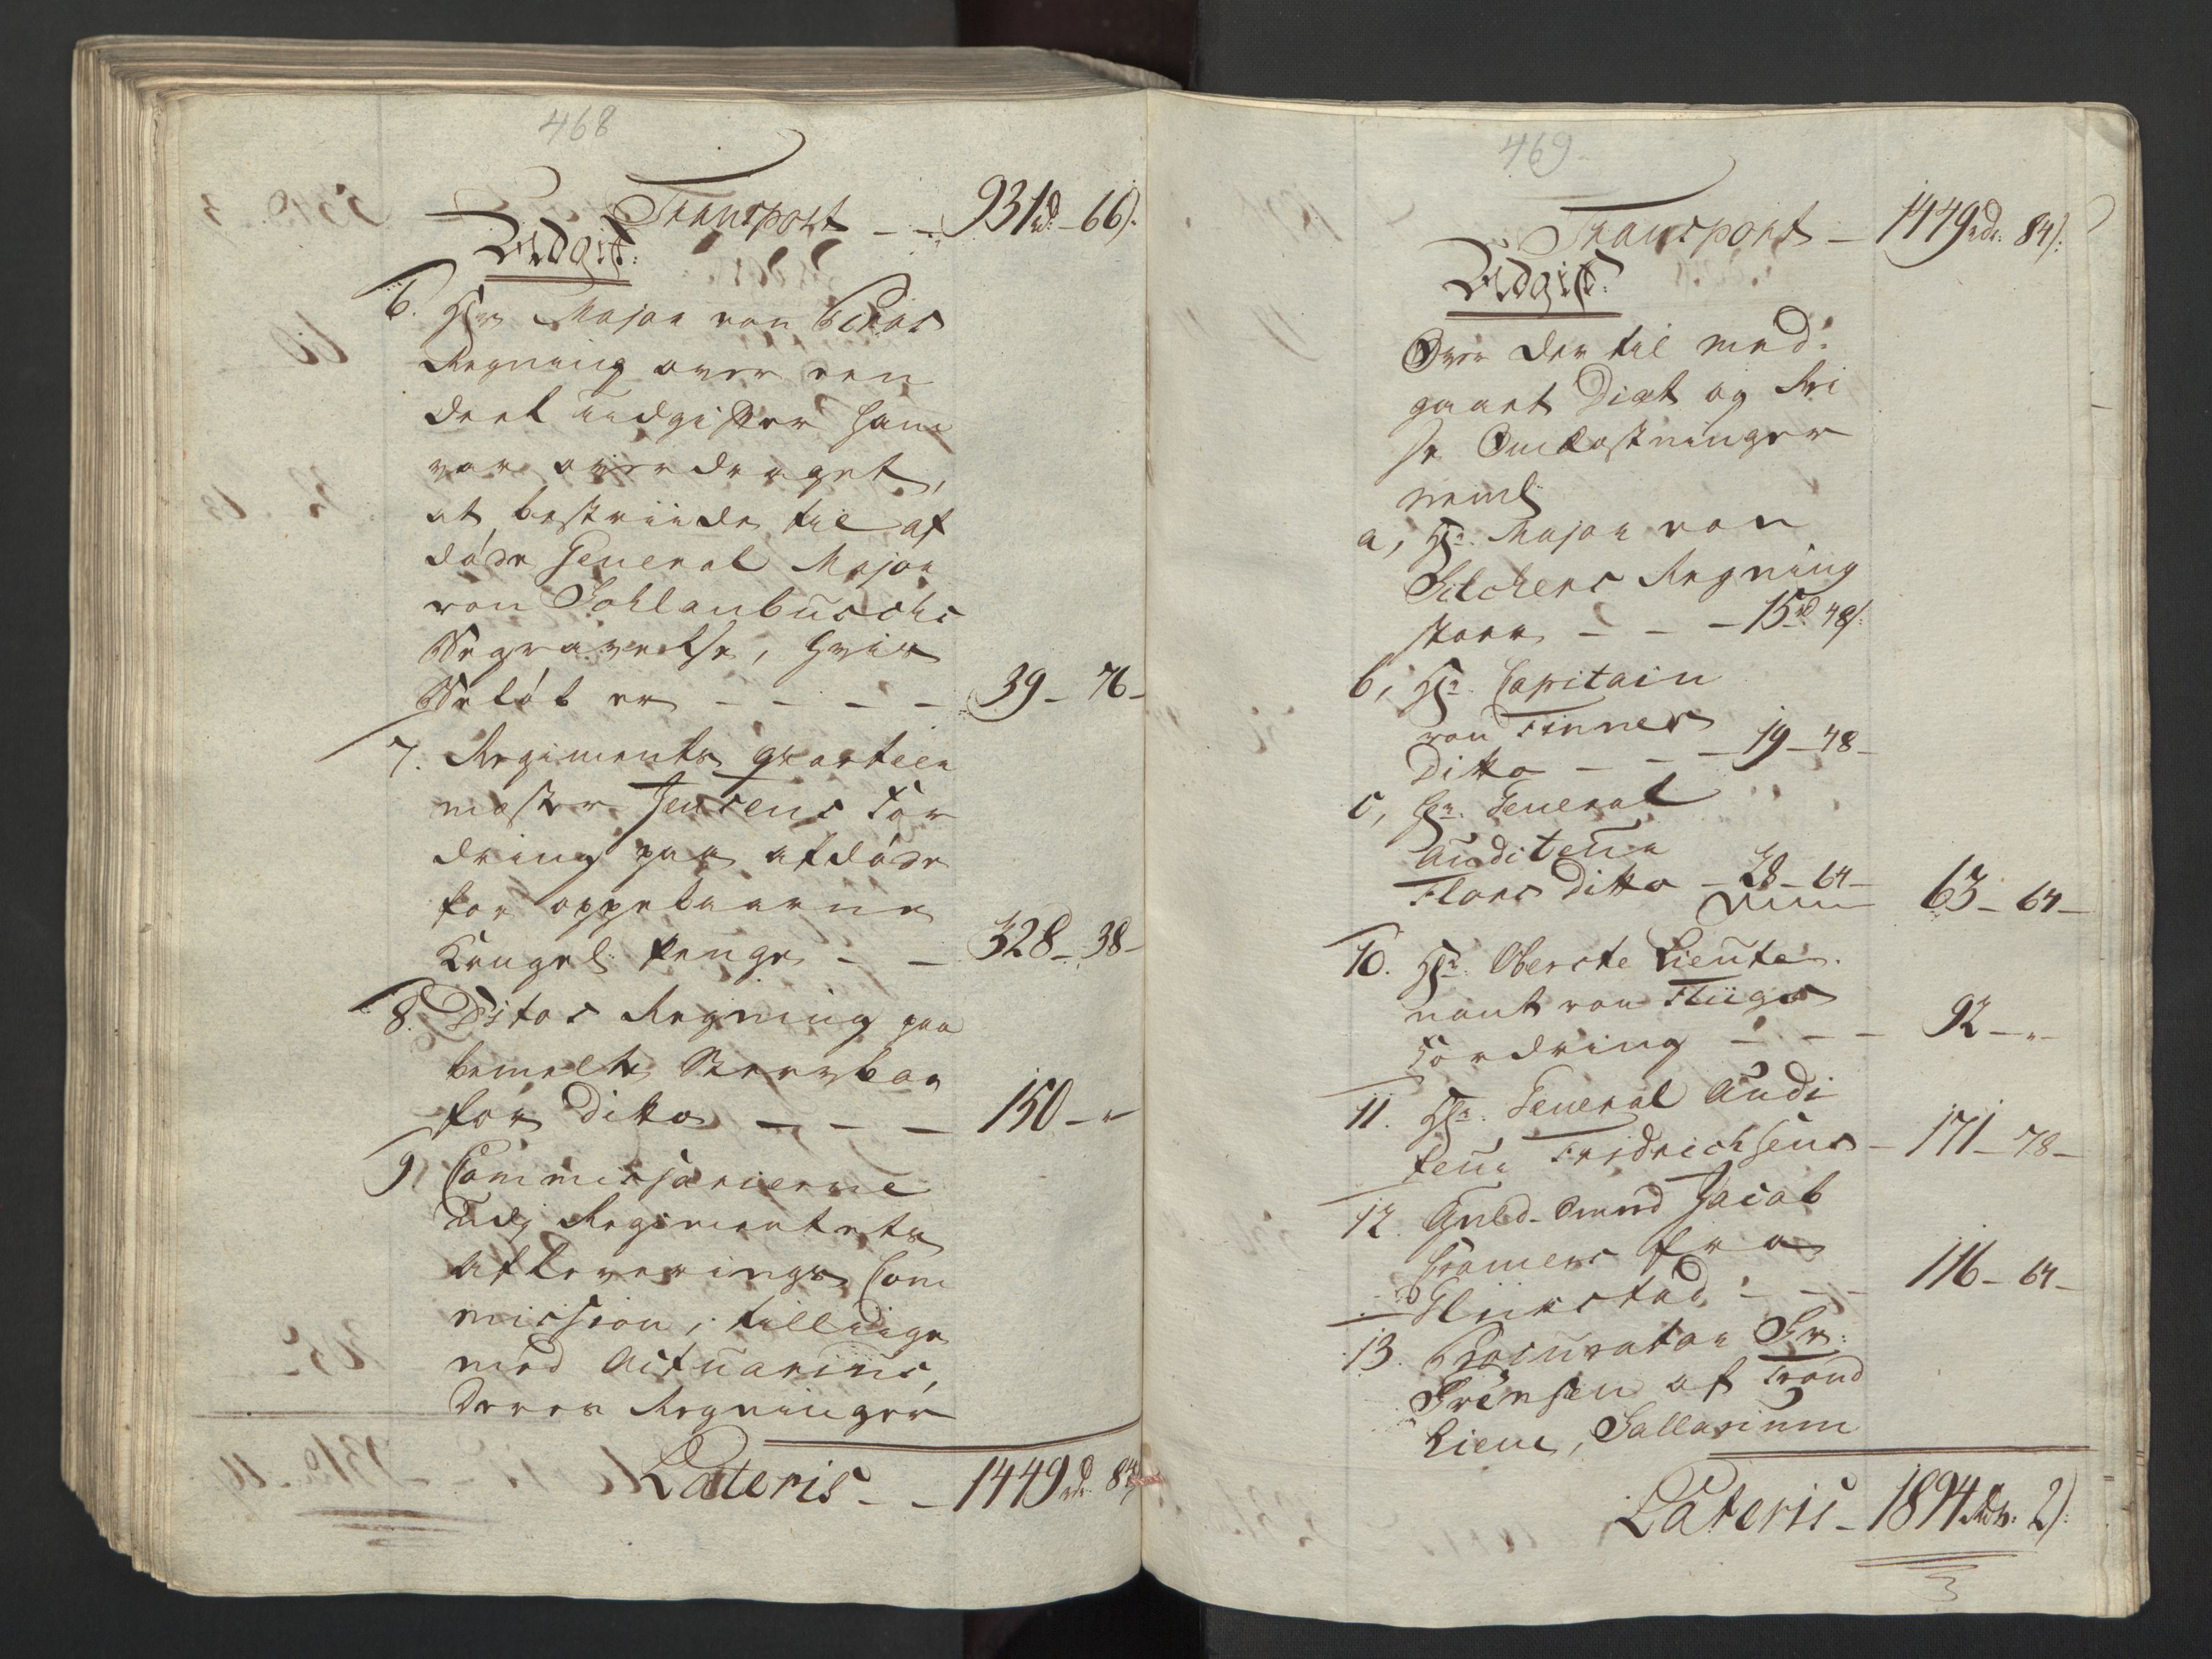 468
Transport - - 931rd. 66s:
Udgift:
6. Hr Major von
Regning over een
deel udgifter ham
var overdraget,
at bestriide til af
døde General Major
von Sohlanbuschs
Begravelse, hvis
Beløb er - - - - 39 - 76 -
7. Regiments quarteer
mester Jensens For
dring paa afdøde
for oppebaarne
Kongel: Penge - - 328 - 38 -
8. Ditos Regning paa
bemelte Stervboe
for Ditto - - - 150 - "
9, Commissarierne
udj Regimentets
Afleverings Com
mission, tilliige
med Actuarius,
deres Regninger
Lateris - - 1449rdr. 84s
469
Transport - 1449rdr: 84s:
Udgift:
Over der til med:
gaaet Diæt og Rei
se Omkostninger
neml:
a, Hr: Major von
Regning
stor - - - 15rd 48s:
b, Hr: Capitain
von Finnes
Ditto - - - 19 - 48 -
c, Hr: General
Auditeur
Flors Ditto - 28 - 64 - 63 - 64 -
10. Hr: Oberste Lieute
nant von
Fordring - - - 92 - " -
11. Hr: General Audi
teur Fridrichsens - 171 - 78 -
12. Guld-Smed Jacob
Cramers fra
Glükstad - - - 116 - 64 -
13. Procurator Hr:
af Trond
hiem, Sallarium
Lateris - 1894rdr: 2s: